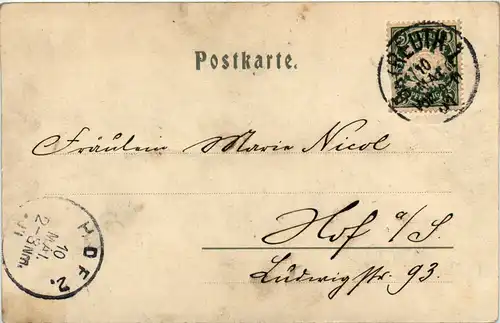 Postkarte.
Fräulein Marie Nicol
Hof a/S
Ludwigstr. 93.
HOF 2.
10
MAI.
2-3Nm.
01
10
MAI